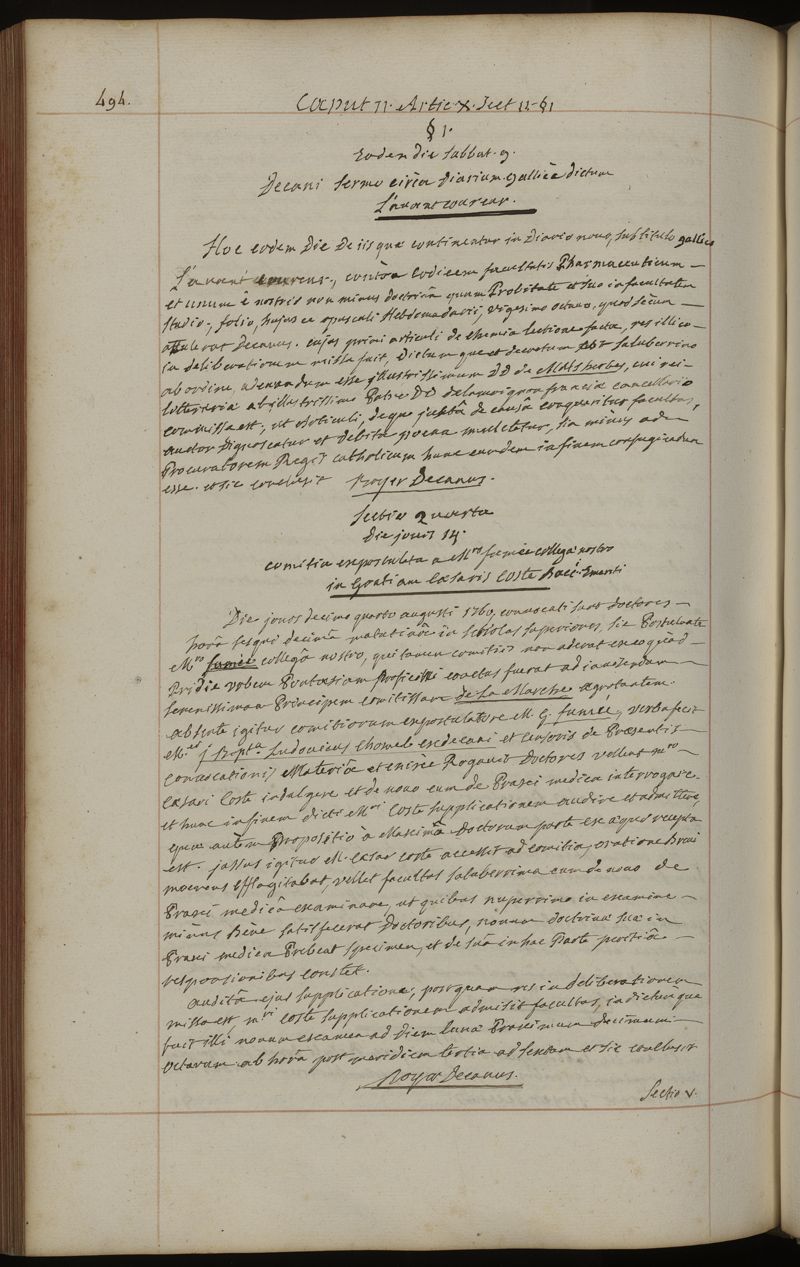 494.
Caput 11. Artic. X. Sect 11. §1
§ 1.
Eodem die sabbat. 9.
Decani sermo circa Diarium gallicè dictum
L'avantcoureur.
Hoc eodem Die De iis quæ continentur in Diario novo, sub titulo gallico
L'avant coureur, contra Codicem facultatis Pharmaceuticum —
et unum è nostris non minus doctrinâ quam Probitate et suo in facultatem
studio, folio, hujus ce opusculi hebdomadarii, vigesimo octavo, quod secum —
attulerat Decanus. cujus primi articuli de chemia lectione facta, res illico —
in deliberationem missa fuit, Dictumque et decretum est saluberrimo
ab ordine, adeundum esse illustrissimum DD de Malsherbes, cui rei-
litterariæ ab illustrissimo Patre DD Delamoignon franciæ cancellario
commissa est, ut articuli, de quo justâ de causâ conqueritur facultas,
auctor Dignoscatur et debitâ poena mulctetur, sin minùs ad —
Procuratorem Regis catholicum hunc eumdem in finem confugiendum
esse. et sic conclusit Royer Decanus.
Sectio Quarta
Die jovis 14.
comitia expostulata a Mro fumée collega nostro
in Gratiam Cæsaris Coste Bacc. Emeriti
Die jovis decimo quarto augusti 1760, convocati sunt doctores —
horâ sesqui decimâ matutinâ in scholas superiores, sic Postulante
Mro fumée collegâ nostro, qui tamen comitiis non aderat ex eo quod —
Pridie vobem Pontæsiam Proficisci coactus fuerat ad invisendam —
serenissimam Principem comitissam de la Marche ægrotantem.
absente igitur comitiorum expostulatore M. G. fumée, verba fecit
M. j Bapta Ludovicus Chomel exdecani et censoris de Præsentis —
convocationis Materiâ et enixè Rogavit Doctores vellent mro —
Cæsari Coste indulgere et de novo eum de Praxi medica interrogare.
et hunc in finem dicti Mri Coste supplicationem audire et admittere,
quæ autem Propositio à Maximâ Doctorum parte ex æquo recepta
est. jussus igitur M. Cæsar Coste accessit ad comitia, oratione Brevi
moerens efflagitabat, vellet facultas saluberrima eum de novo de
Praxi medicâ examinare, ut quibus nuperrimo in examine —
minus Bene satisfecerat Doctoribus, novum doctrinæ suæ in
Praxi medica Prebeat specimen, et de suâ in hac Parte peritiâ —
responsionibus constet.
auditâ ejus supplicatione, postquam res in deliberationem
missa est, mri Coste supplicationem admisit facultas, indictumque
fuit illi novum examen ad Diem lunæ Proximum Decimum —
octavum ab horâ post meridiem tertia ad sextam et sic conclusit
Royer Decanus.
Sectio V.